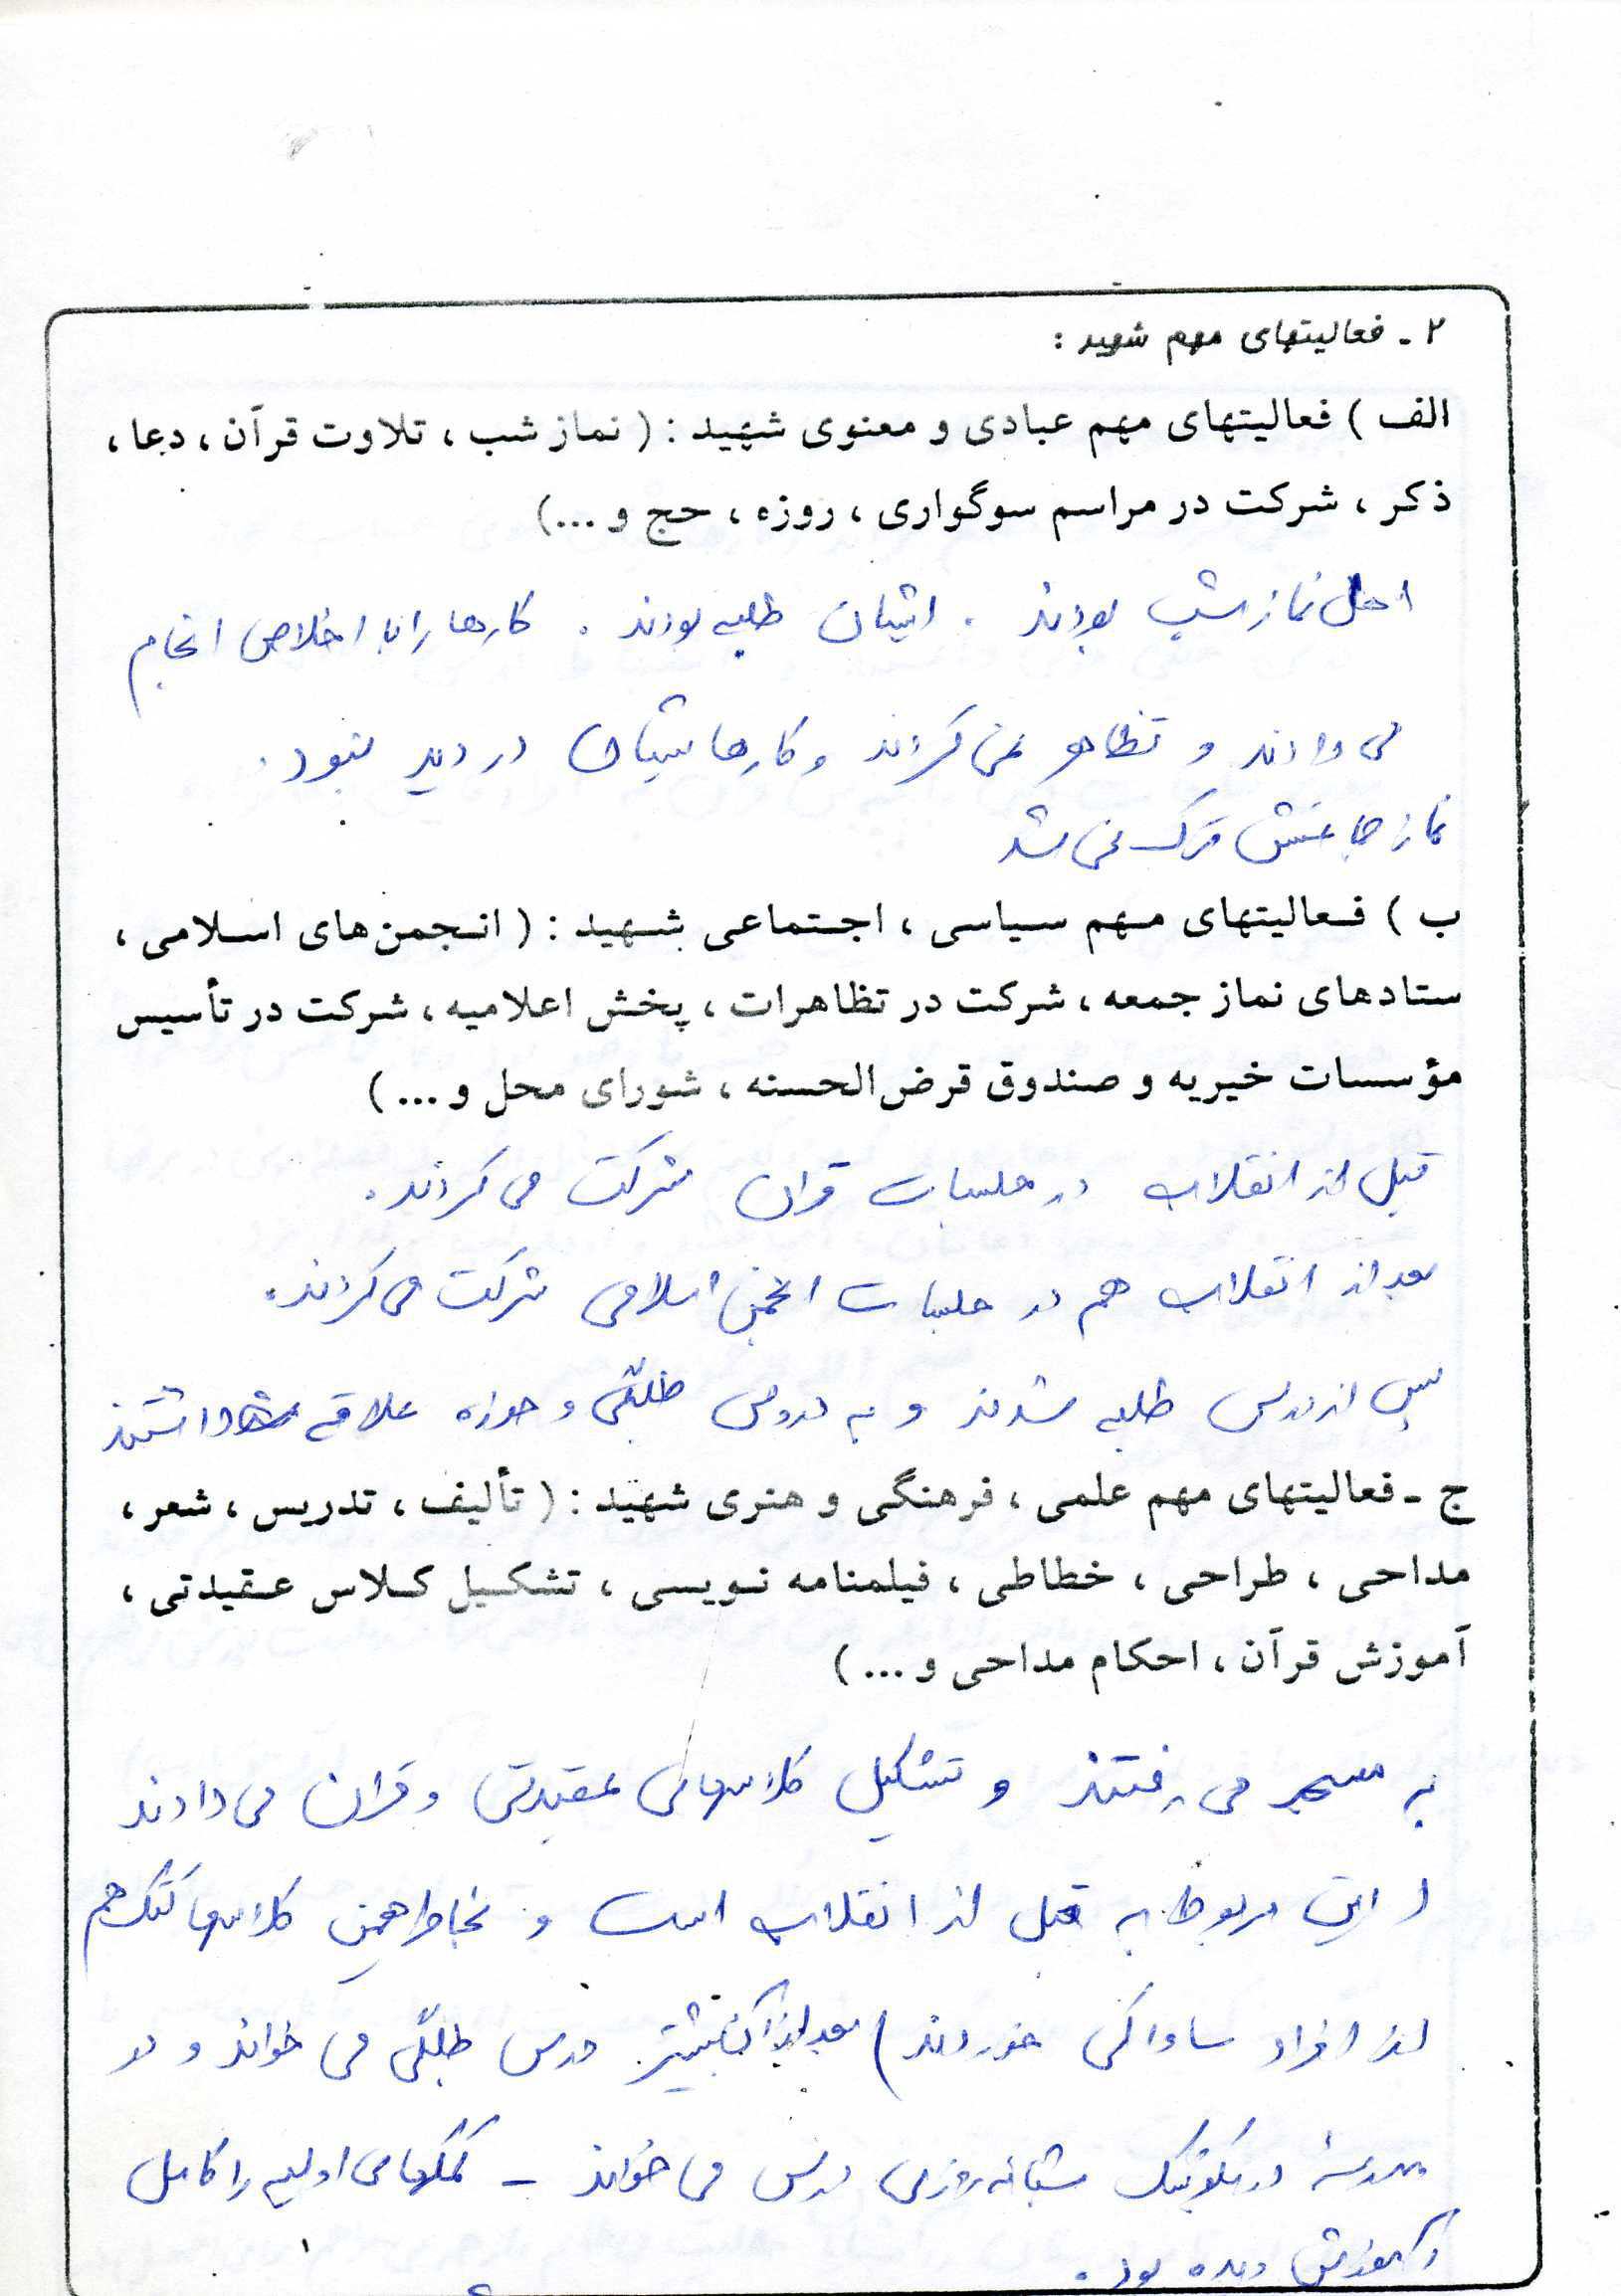 ۲ ـ فعالیتهای مهم شهید :
الف ) فعالیتهای مهم عبادی و معنوی شهید : ( نماز شب ، تلاوت قرآن ، دعا ،
ذکر ، شرکت در مراسم سوگواری ، روزه ، حج و ...)
اهل نماز شب بودند . ایشان طلبه بودند . کارها را با اخلاص انجام
می دادند و تظاهر نمی کردند و کارهایشان در دید نبود .
نماز جماعتش ترک نمی شد
ب ) فعالیتهای مهم سیاسی ، اجتماعی شهید : ( انجمن های اسلامی ،
ستادهای نماز جمعه ، شرکت در تظاهرات ، پخش اعلامیه ، شرکت در تأسیس
مؤسسات خیریه و صندوق قرض الحسنه ، شورای محل و ... )
قبل از انقلاب در جلسات قران شرکت می کردند .
بعد از انقلاب هم در جلسات انجمن اسلامی شرکت می کردند .
پس از درس طلبه شدند و به دروس طلبگی و حوزه علاقه داشتند
ج ـ فعالیتهای مهم علمی ، فرهنگی و هنری شهید : ( تألیف ، تدریس ، شعر ،
مداحی ، طراحی ، خطاطی ، فیلمنامه نویسی ، تشکیل کلاس عقیدتی ،
آموزش قرآن ، احکام مداحی و ... )
به مسجد می رفتند و تشکیل کلاسهای عقیدتی و قران می دادند
( این مربوط به قبل از انقلاب است و بخاطر همین کلاسها کتک هم
از افراد ساواکی خوردند ) بعد از آن بیشتر درس طلبگی می خواند و در
مدرسهٔ شبانه روزی درس می خواند - کمکهای اولیه را کامل
آموزش دیده بود .